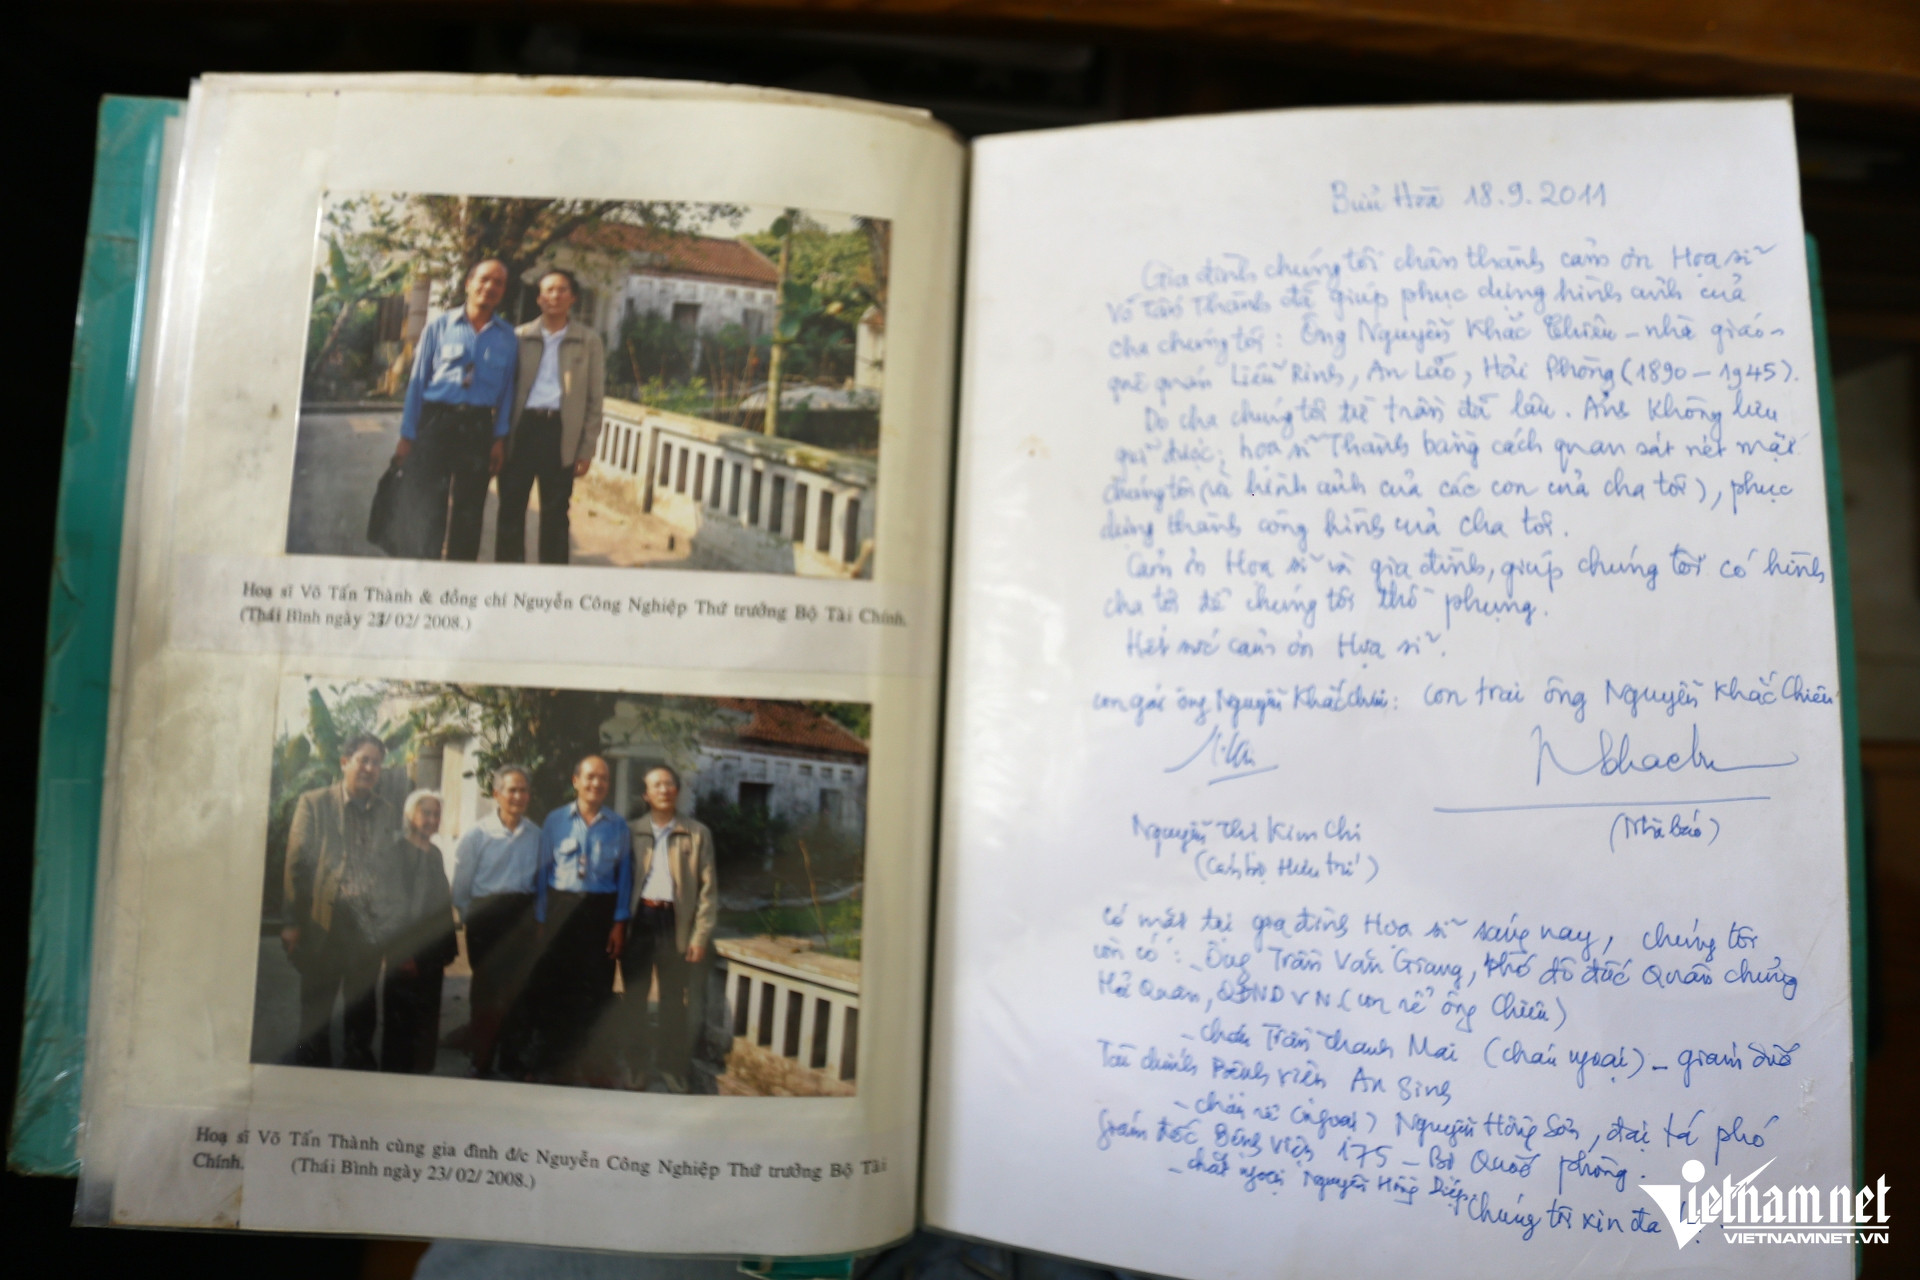 Hoạ sĩ Võ Tấn Thành & đồng chí Nguyễn Công Nghiệp Thứ trưởng Bộ Tài Chính.
(Thái Bình ngày 23/ 02/ 2008.)
Hoạ sĩ Võ Tấn Thành cùng gia đình đ/c Nguyễn Công Nghiệp Thứ trưởng Bộ Tài
Chính. (Thái Bình ngày 23/ 02/ 2008.)
Bửu Hoà 18.9.2011
Gia đình chúng tôi chân thành cảm ơn Hoạ sĩ
Võ Tấn Thành đã giúp phục dựng hình ảnh của
cha chúng tôi: Ông Nguyễn Khắc Chiêu - nhà giáo -
quê quán Liễu Dinh, An Lão, Hải Phòng (1890 - 1945).
Do cha chúng tôi từ trần đã lâu. Ảnh không lưu
giữ được; hoạ sĩ Thành bằng cách quan sát nét mặt
chúng tôi (và hình ảnh của các con của cha tôi), phục
dựng thành công hình của cha tôi.
Cảm ơn Hoạ sĩ và gia đình, giúp chúng tôi có hình
cha tôi để chúng tôi thờ phụng.
Hết sức cảm ơn Hoạ sĩ.
con gái ông Nguyễn Khắc Chiêu: con trai ông Nguyễn Khắc Chiêu
(Nhà báo)
Nguyễn Thị Kim Chi
(Cán bộ Hưu trí)
Có mặt tại gia đình Hoạ sĩ sáng nay, chúng tôi
còn có: - Ông Trần Văn Giang, Phó đô đốc Quân chủng
Hải Quân, QĐNDVN (con rể ông Chiêu)
- cháu Trần Thanh Mai (cháu ngoại) - giám đốc
Tài chính Bệnh viện An Sinh
- cháu rể (ngoại) Nguyễn Hồng Sơn, đại tá phó
Giám đốc Bệnh viện 175 - Bộ Quốc phòng.
- chắt ngoại Nguyễn Hồng Diệp.
Chúng tôi xin đa
Vietnamnet
VIETNAMNET.VN